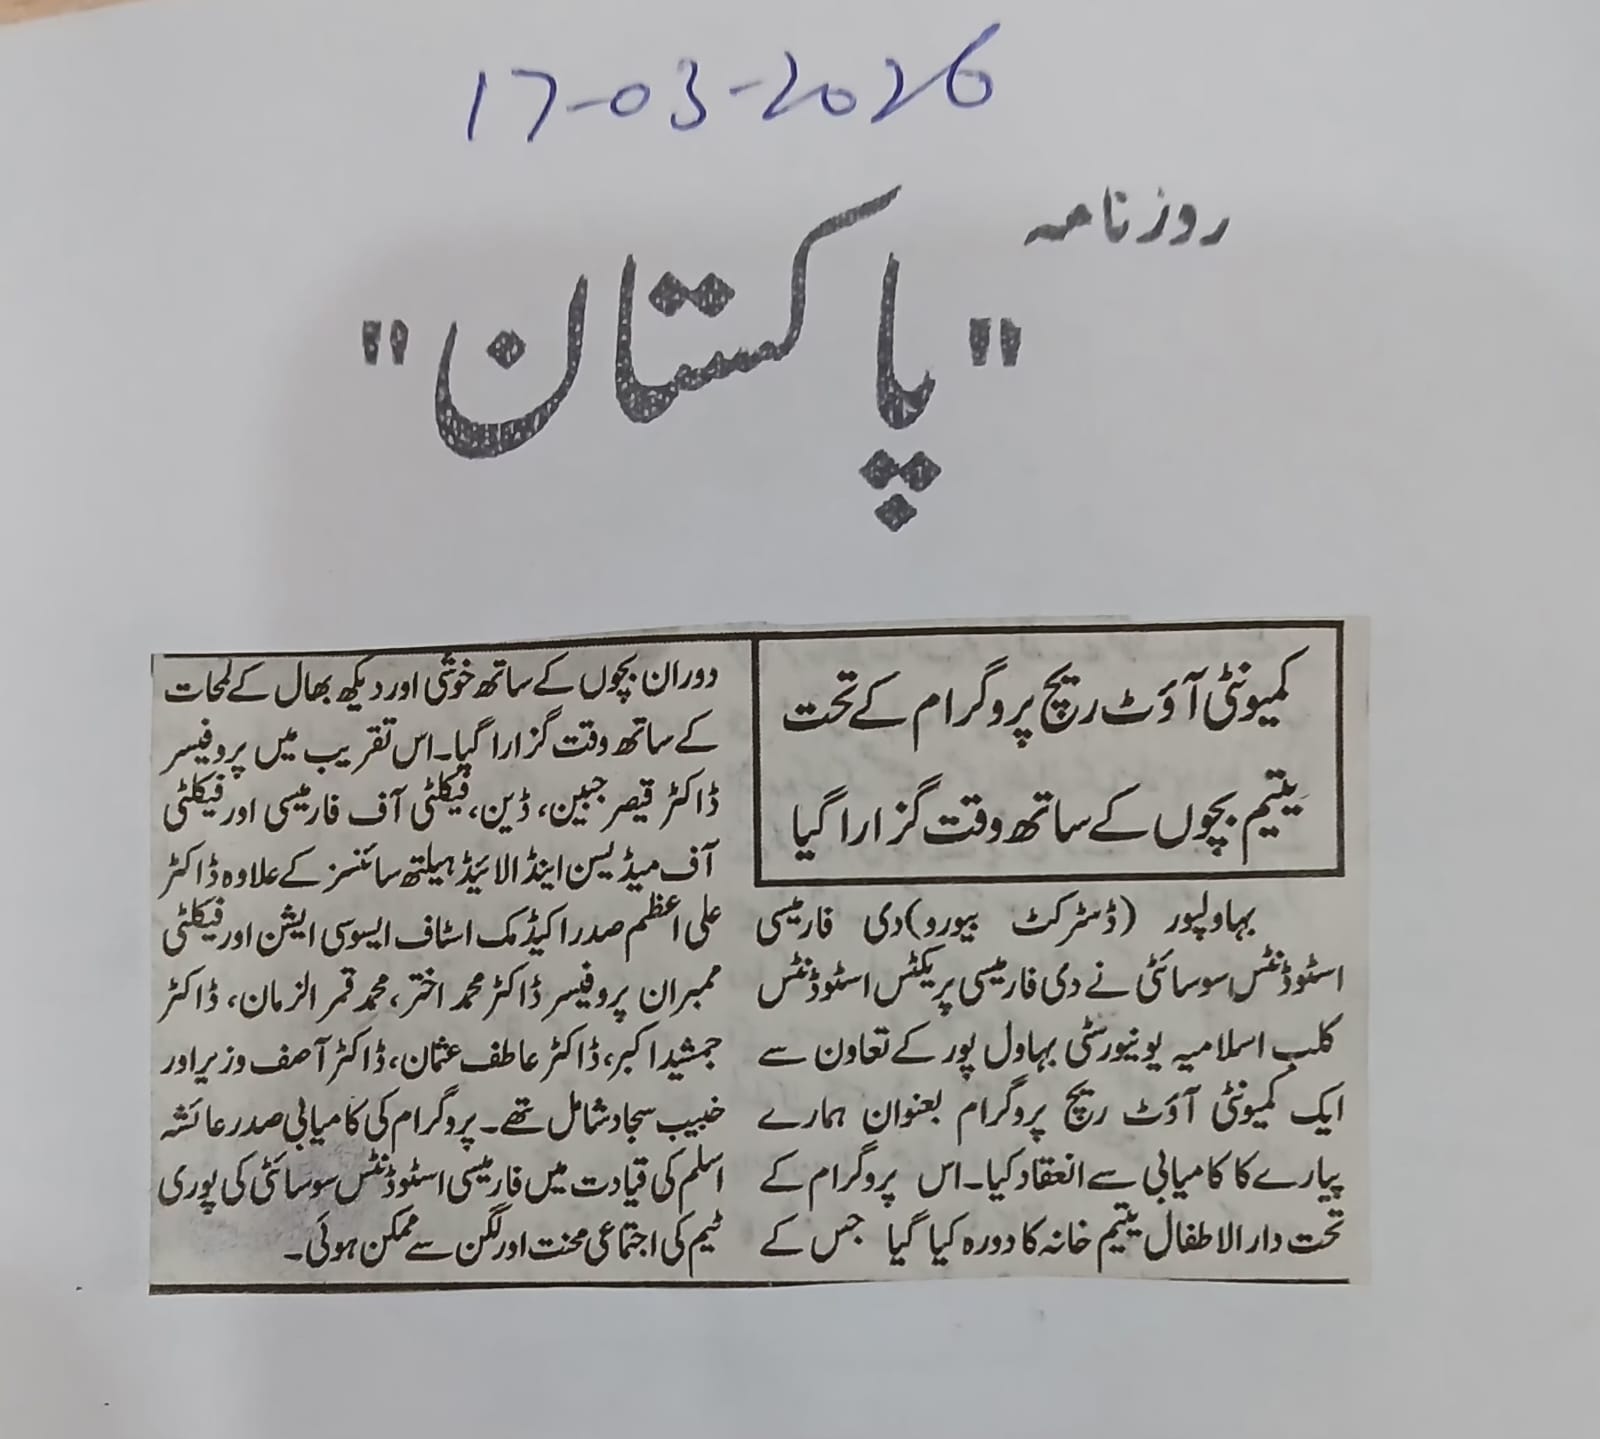 17-03-2026
روزنامہ
"پاکستان"
کمیونٹی آؤٹ ریچ پروگرام کے تحت
یتیم بچوں کے ساتھ وقت گزارا گیا
بہاولپور (ڈسٹرکٹ بیورو) دی فارمیسی
اسٹوڈنٹس سوسائٹی نے دی فارمیسی پریکٹس اسٹوڈنٹس
کلب اسلامیہ یونیورسٹی بہاول پور کے تعاون سے
ایک کمیونٹی آؤٹ ریچ پروگرام بعنوان ہمارے
پیارے کا کامیابی سے انعقاد کیا۔ اس پروگرام کے
تحت دارالاطفال یتیم خانہ کا دورہ کیا گیا جس کے
دوران بچوں کے ساتھ خوشی اور دیکھ بھال کے لمحات
کے ساتھ وقت گزارا گیا۔ اس تقریب میں پروفیسر
ڈاکٹر قیصر جبین، ڈین، فیکلٹی آف فارمیسی اور فیکلٹی
آف میڈیسن اینڈ الائیڈ ہیلتھ سائنسز کے علاوہ ڈاکٹر
علی اعظم صدر اکیڈمک اسٹاف ایسوسی ایشن اور فیکلٹی
ممبران پروفیسر ڈاکٹر محمد اختر، محمد قمر الزمان، ڈاکٹر
جمشید اکبر، ڈاکٹر عاطف عثمان، ڈاکٹر آصف وزیر اور
خبیب سجاد شامل تھے۔ پروگرام کی کامیابی صدر عائشہ
اسلم کی قیادت میں فارمیسی اسٹوڈنٹس سوسائٹی کی پوری
ٹیم کی اجتماعی محنت اور لگن سے ممکن ہوئی۔